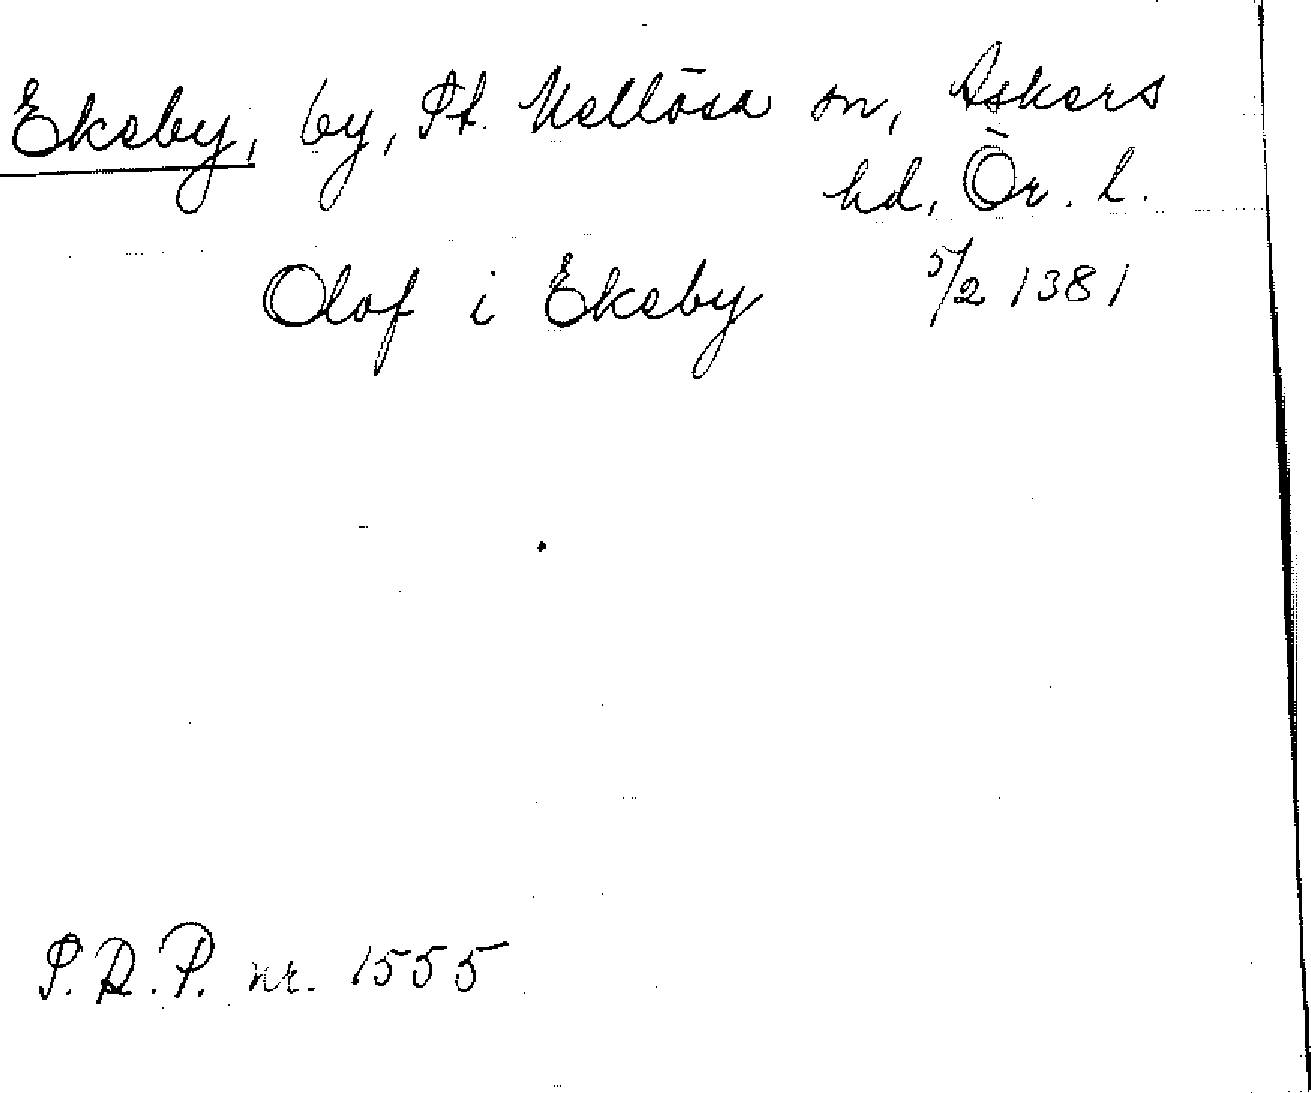 Ekeby, by, St. Mellösa sn, Askers
hd, Ör. l.
Olof i Ekeby 5/2 1381
S.R.P. nr. 1555